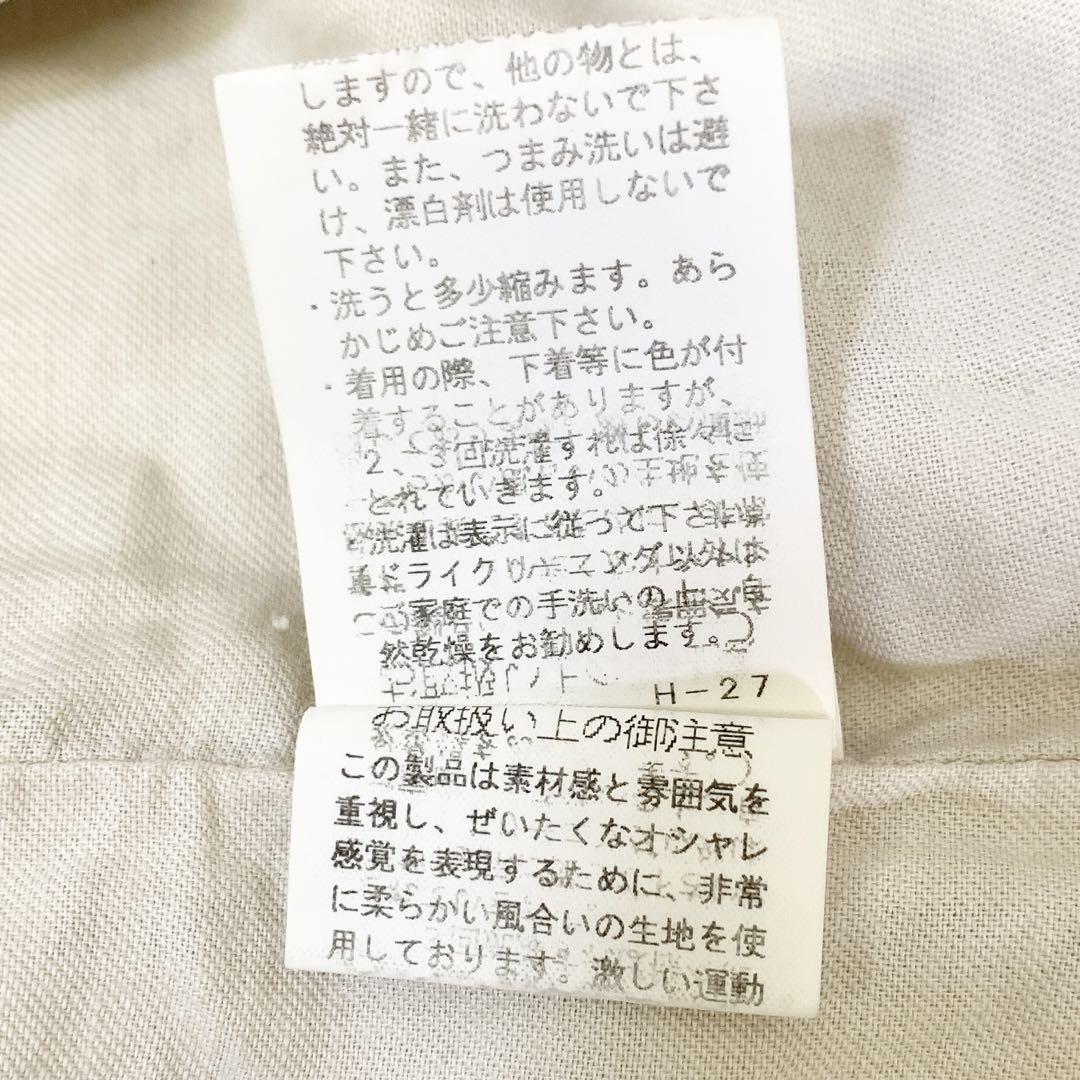 しますので、他の物とは、
絶対一緒に洗わないで下さ
い。また、つまみ洗いは避
け、漂白剤は使用しないで
下さい。
・洗うと多少縮みます。あら
かじめご注意下さい。
・着用の際、下着等に色が付
着することがありますが、
2、3回洗濯すれば徐々に
とれていきます。
洗濯は表示に従って下さ
ドライクリーニング以外は
家庭での手洗いの上、自
然乾燥をお勧めします。
H-27
お取扱い上の御注意
この製品は素材感と雰囲気を
重視し、ぜいたくなオシャレ
感覚を表現するために、非常
に柔らかい風合いの生地を使
用しております。激しい運動